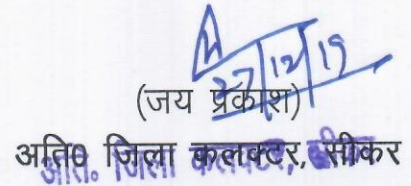 27/12/19
(जय प्रकाश)
अति० जिला कलक्टर, सीकर
अति० जिला कलक्टर, सीकर